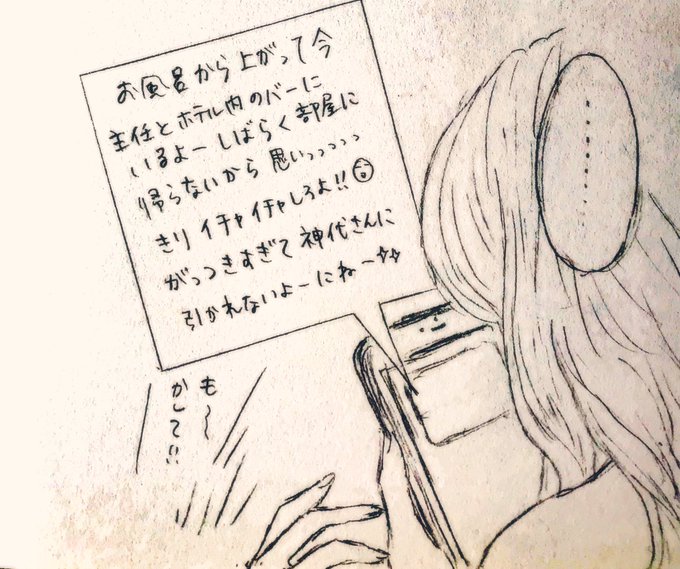 お風呂から上がって今
主任とホテル内のバーに
いるよーしばらく部屋に
帰らないから思いっっっっっ
きりイチャイチャしろよ!!
がっつきすぎて神代さんに
引かれないよーにねー
........
も〜
かして!!